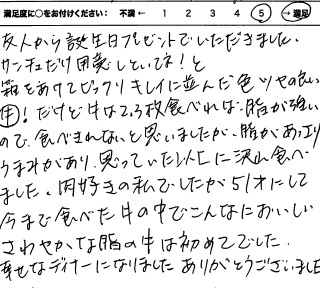 満足度に○をお付けください： 不満 ← 1 2 3 4 5 → 満足
友人から誕生日プレゼントでいただきました。
サンチュだけ用意しといてネ！と
箱をあけてビックリキレイに並んだ色ツヤの良い
牛！だけど牛は2,3枚食べれば脂が強い
ので食べきれないと思いましたが、脂があっさり
うまみがあり、思っていた以上に沢山食べ
ました。肉好きの私でしたが51才にして
今まで食べた牛の中でこんなにおいしい
さわやかな脂の牛は初めてでした。
幸せなディナーになりました ありがとうございました